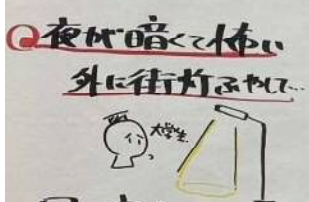 Q夜が暗くて怖い
外に街灯ふやして…
大学生